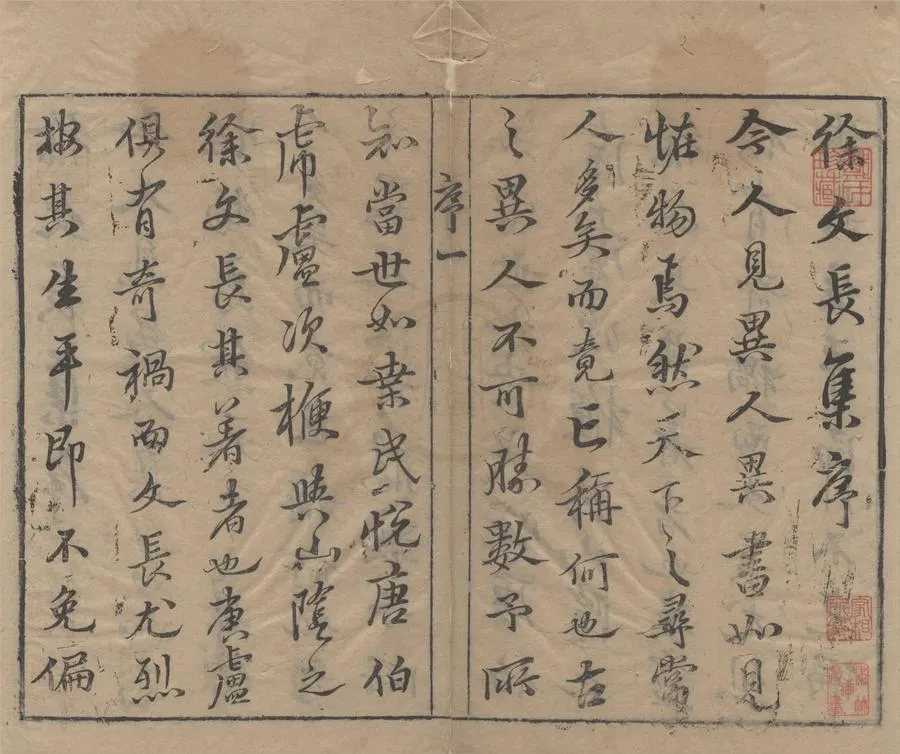 徐文長集序
今人見異人異書如見
恠物焉然天下之尋常
人多矣而竟亡稱何也古
之異人不可勝數予所
序一
知當世如桑民悅唐伯
虎盧次楩與山陰之
徐文長其著者也唐盧
俱有奇禍而文長尤烈
按其生平即不免偏